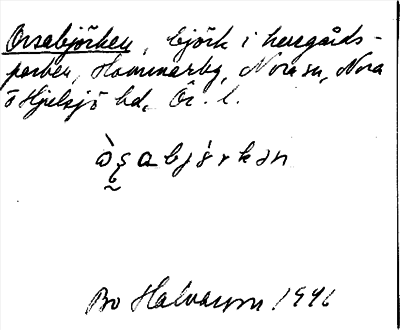 Orsabjörken, björk i herrgårds-
parken, Hammarby, Nora sn, Nora
o Hjulsjö hd, Ör. l.
Bo Halvarson 1946